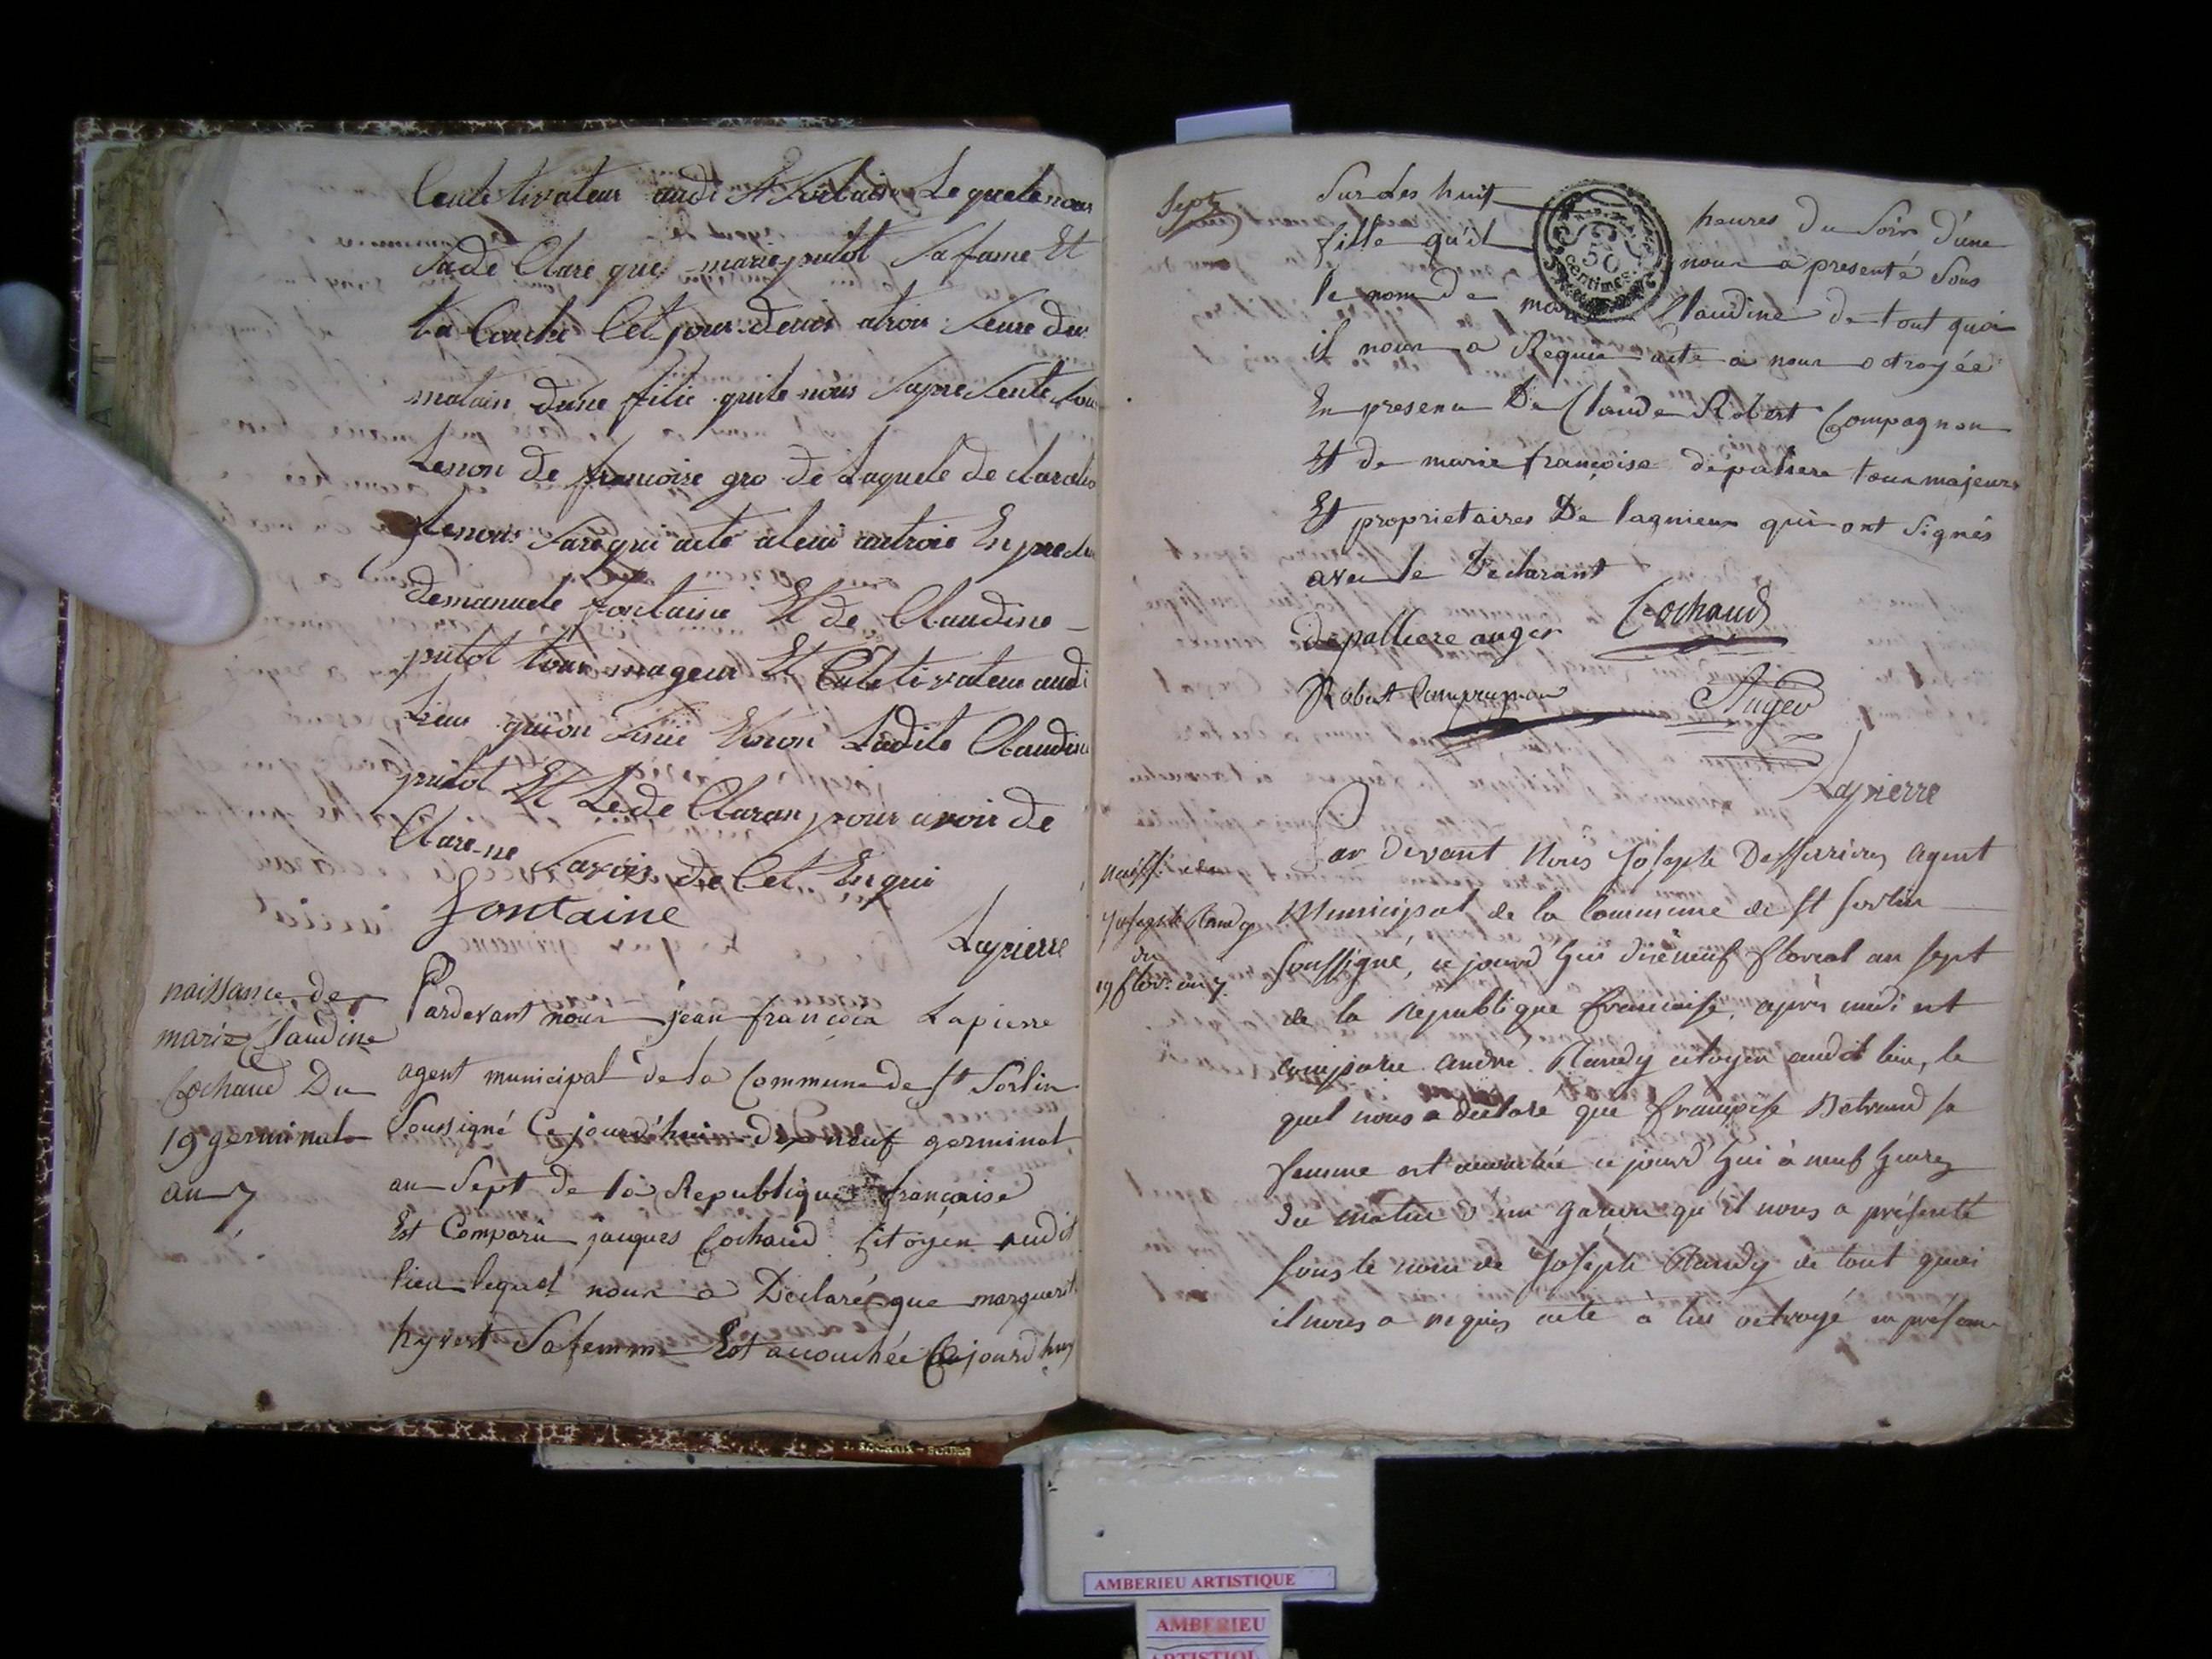 Cculetivateur audi St Sorlain Le quele nous
Sade Clare que marie putot Sa fame Et
ta Couche Cet jour deuis a troi Seure du
matain dune filie quile nous Sapre Sente Sou
Lenon de francoise gro de Laquele de claration
ilenous Sarequi acte alui autroié En presen
demanuele fontaine Et de Claudine
putot tous mageur Et Culetivateur audi
Lieu quion Sinié Enon Ladite Claudine
putot Et Lede Claran pour avoir de
Clare ne Savoir de Cet Enqui
fontaine
Lapierre
naissance de
marie Claudine
Cochaud Du
19 germinal
an 7
Pardevant nous jean françois Lapierre
agent municipal de la Commune de St Sorlin
Soussigné Ce jourd'hui dix neuf germinal
an Sept de la Republique française
Est Comparu jacques Cochaud Citoyen audit
lieu lequel nous a Déclaré que marguerite
hyvert Sa femme Est accouchée Cejourd'huy
Sept
Sur Les huit heures du Soir d'une
fille qu'il nous a presenté Sous
50
centimes
le nom de marie Claudine de tout quoi
il nous a Requis acte a nous octroyée
En presence De Claude Robert Compagnon
Et de marie françoise depaliere tous majeurs
Et proprietaires De lagnieux qui ont Signés
avec le Declarant
depalliere auger
Cochaud
Robert Compagnon
Auger
Lapierre
Joseph Randy
du
19 flor. an 7.
Par devant Nous Joseph Desferrieres agent
Municipal de la Commune de St Sorlin
Soussigné, ce jourd'hui dixneuf floreal an sept
de la République francaise, après midi est
comparu andré Randy citoyen audit lieu, le
quel nous a déclaré que françoise Bertrand sa
femme est accouchée ce jourd'hui à neuf heures
du matin d'un garcon qu'il nous a présenté
sous le nom de Joseph Randy de tout quoi
il nous a requis acte à lui octroyé en présence
J. - BOURG
AMBERIEU ARTISTIQUE
AMBERIEU
ARTISTIQU